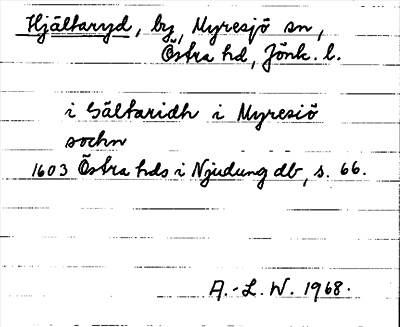 Hjältaryd, by, Myresjö sn,
Östra hd, Jönk. l.
i Hältaridh i Myresiö
sochn
1603 Östra hds i Njudung db, s. 66.
A.-L. W. 1968.